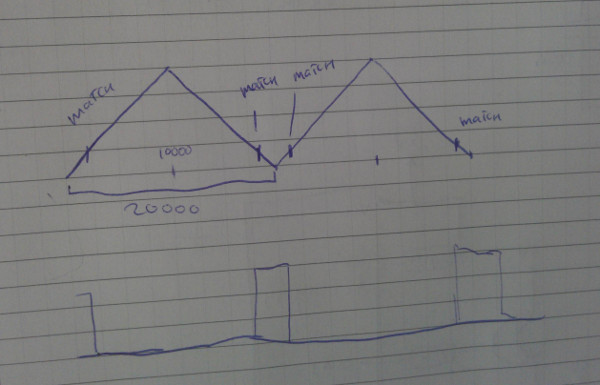 match
match
match
match
10000
20000